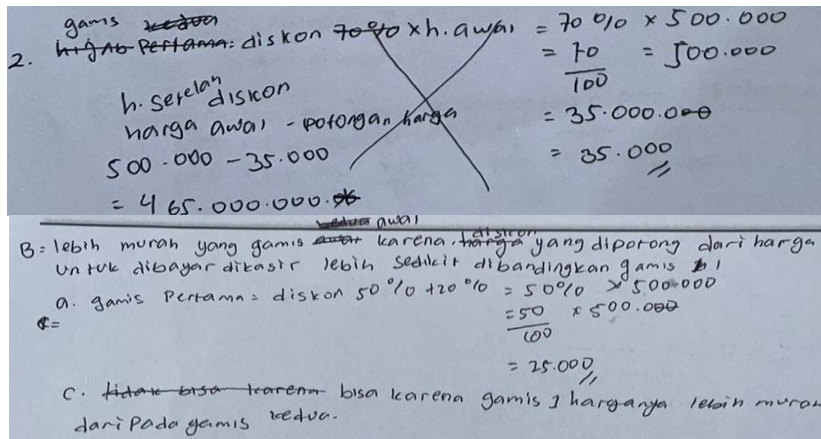 gamis kedua
2. harga Pertama: diskon 70% x h. awal = 70% x 500.000
= 70/100 = 500.000
h. setelah diskon
= 35.000.000
harga awal - potongan harga
500.000 - 35.000 = 35.000
= 465.000.000.
kedua awal
B = lebih murah yang gamis karena. harga diskon yang dipotong dari harga
untuk dibayar dikasir lebih sedikit dibandingkan gamis 1
a. gamis Pertama = diskon 50% + 20% = 50% x 500.000
= 50/100 x 500.000
= 25.000
C. tidak bisa karena bisa karena gamis 1 harganya lebih murah
daripada gamis kedua.